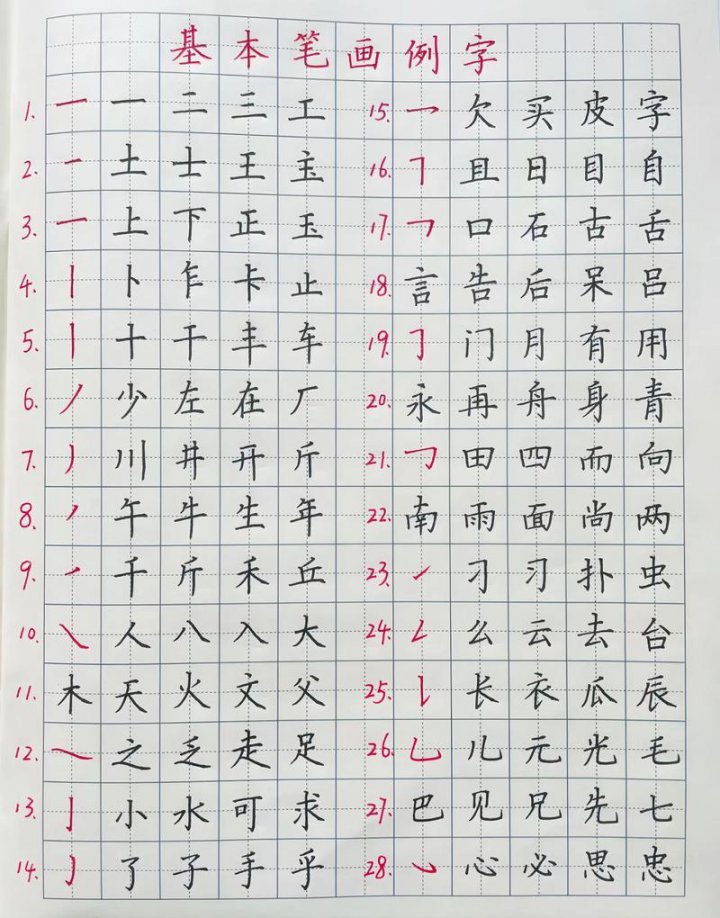 基本笔画例字
1. 一 一 二 三 工
2. ㇀ 土 士 王 主
3. 一 上 下 正 玉
4. 丨 卜 乍 卡 止
5. 丨 十 干 丰 车
6. 丿 少 左 在 厂
7. 丿 川 井 开 斤
8. 丿 午 牛 生 年
9. ㇒ 千 斤 禾 丘
10. ㇏ 人 八 入 大
11. 木 天 火 文 父
12. ㇏ 之 乏 走 足
13. 亅 小 水 可 求
14. ㇁ 了 子 手 乎
15. 乛 欠 买 皮 字
16. ㇕ 且 日 目 自
17. ㇕ 口 石 古 舌
18. 言 告 后 呆 吕
19. ㇆ 门 月 有 用
20. 永 再 舟 身 青
21. ㇆ 田 四 而 向
22. 南 雨 面 尚 两
23. ㇀ 刁 习 扑 虫
24. ㇜ 么 云 去 台
25. ㇙ 长 衣 瓜 辰
26. 乚 儿 元 光 毛
27. 巴 见 兄 先 七
28. ㇃ 心 必 思 忠